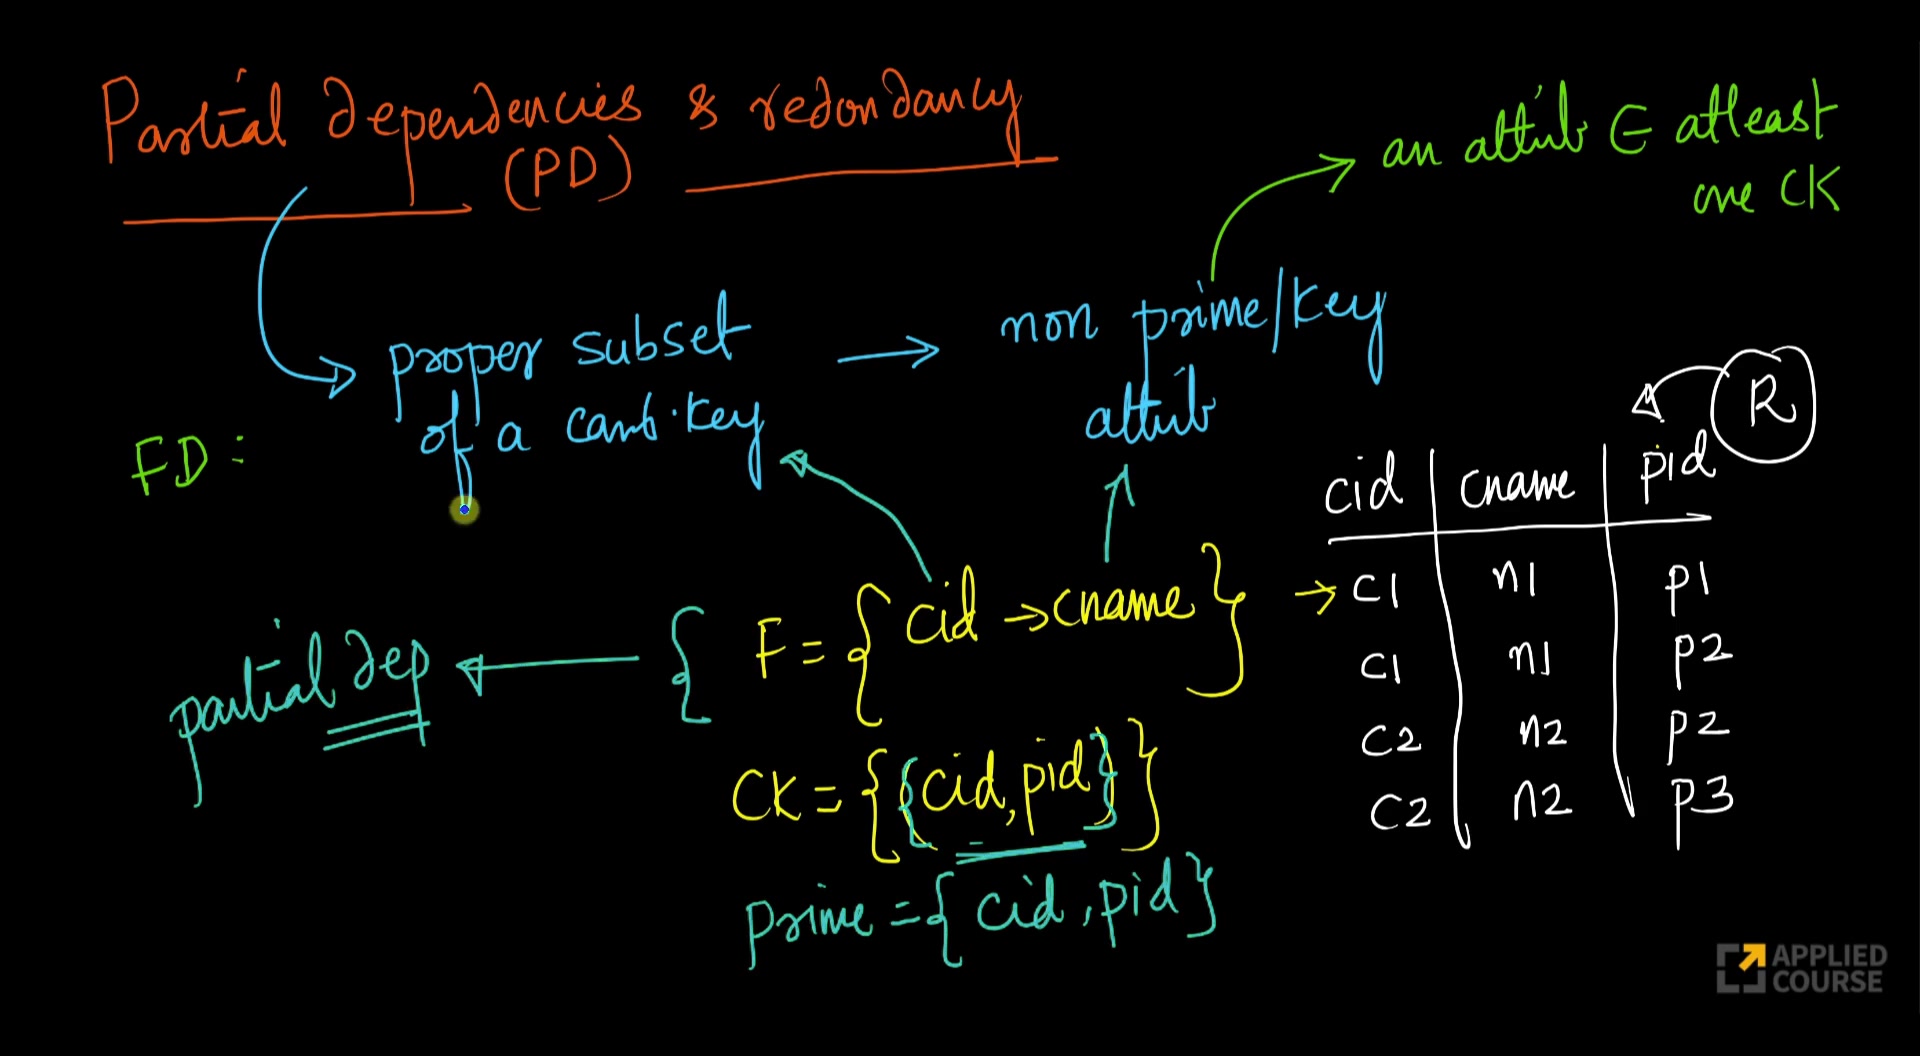 Partial dependencies & redondancy
(PD)
an attrib ∈ atleast
one CK
proper subset → non prime/key
of a cand. key attrib
FD:
R
cid | cname | pid
c1 n1 p1
c1 n1 p2
c2 n2 p2
c2 n2 p3
partial dep
F = { cid → cname }
CK = {{cid, pid}}
prime = { cid, pid }
APPLIED
COURSE